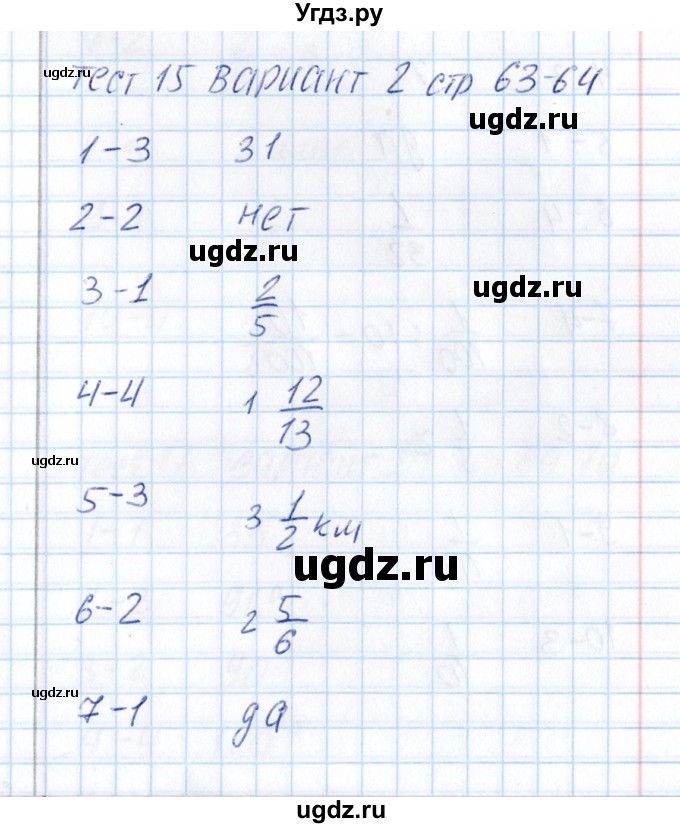 Угдз.ру
Тест 15 вариант 2 стр 63-64
ugdz.ru
ugdz.ru
1-3 31
2-2 нет
ugdz.ru
3-1 2/5
ugdz.ru
4-4 1 12/13
ugdz.ru
5-3 3 1/2 км
ugdz.ru
6-2 2 5/6
ugdz.ru
7-1 да
ugdz.ru